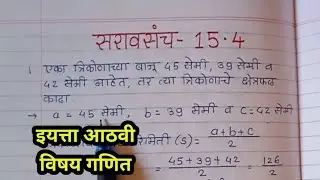 सरावसंच- 15.4
1. एका त्रिकोणाच्या बाजू 45 सेमी, 39 सेमी व
42 सेमी आहेत, तर त्या त्रिकोणाचे क्षेत्रफळ
काढा.
→ a = 45 सेमी, b = 39 सेमी व c = 42 सेमी
इयत्ता आठवी
विषय गणित
(s) = a+b+c / 2
= 45 + 39 + 42 / 2 = 126 / 2